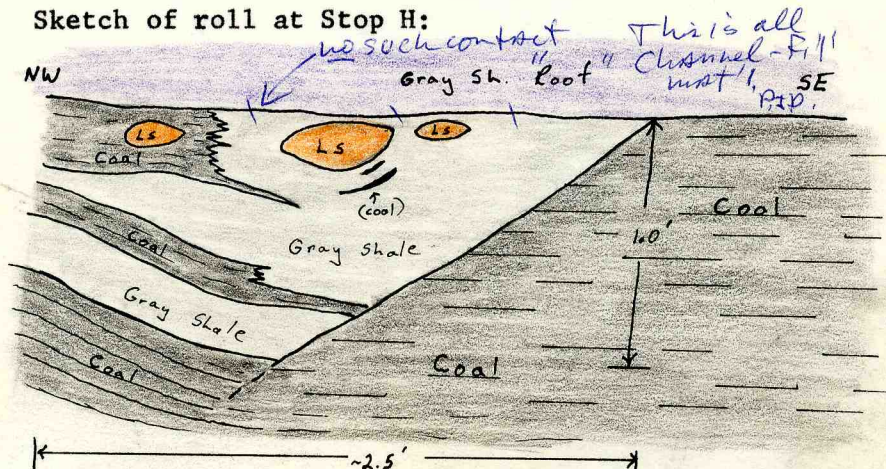 Sketch of roll at Stop H:
no such contact
This is all
Channel-Fill
mat'l.
P.J.D.
NW
Gray Sh. "Roof"
SE
LS
Coal
LS
LS
(coal)
Coal
1.0'
Gray Shale
Coal
Gray Shale
Coal
Coal
~2.5'